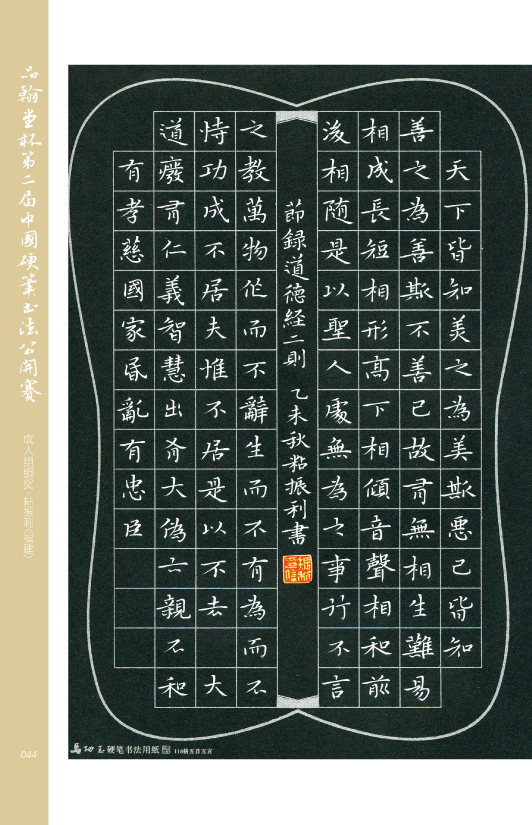 天下皆知美之為美斯惡已皆知
善之為善斯不善已故有無相生難易
相成長短相形高下相傾音聲相和前
後相随是以聖人處無為之事行不言
節録道德经二則 乙未秋粘振利書
之教萬物作而不辭生而不有為而不
恃功成不居夫惟不居是以不去 大
道廢有仁義智慧出有大偽六親不和
有孝慈國家昏亂有忠臣
品翰堂杯第二届中國硬筆书法公開賽
成人组铜奖·粘振利(福建)
044
硬笔书法用纸